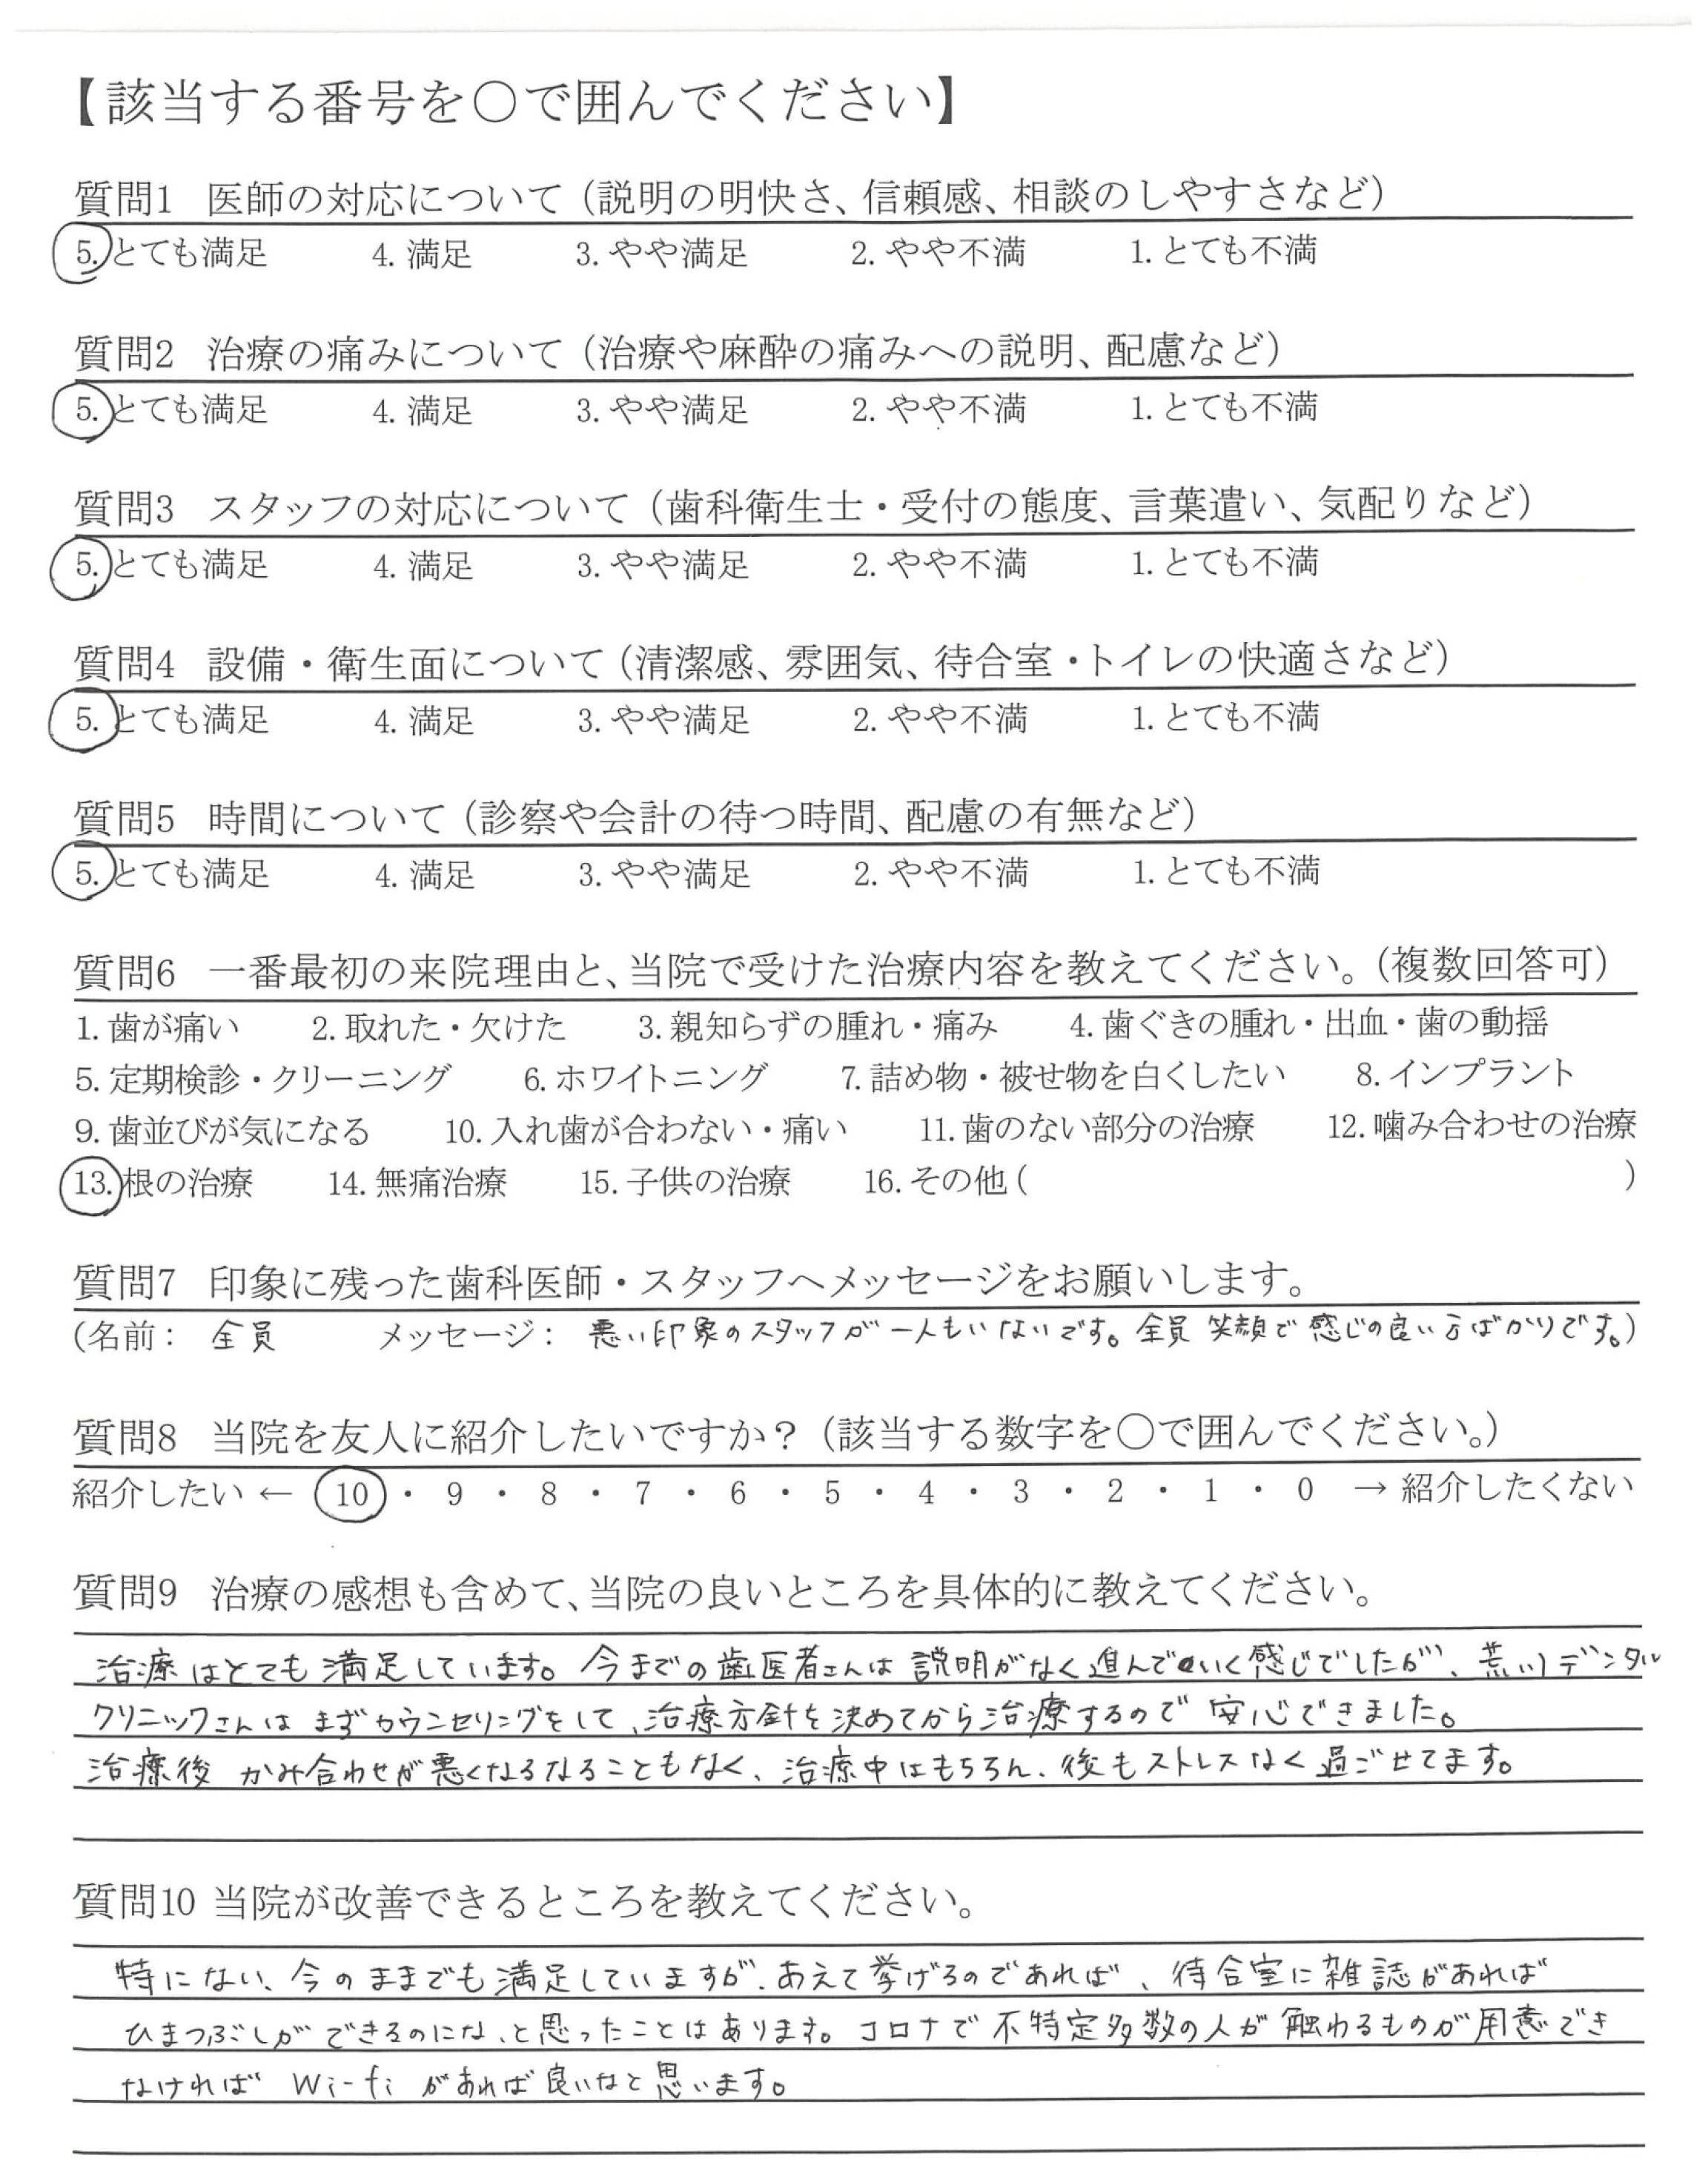 【該当する番号を〇で囲んでください】
質問1 医師の対応について（説明の明快さ、信頼感、相談のしやすさなど）
5. とても満足 4. 満足 3. やや満足 2. やや不満 1. とても不満
質問2 治療の痛みについて（治療や麻酔の痛みへの説明、配慮など）
5. とても満足 4. 満足 3. やや満足 2. やや不満 1. とても不満
質問3 スタッフの対応について（歯科衛生士・受付の態度、言葉遣い、気配りなど）
5. とても満足 4. 満足 3. やや満足 2. やや不満 1. とても不満
質問4 設備・衛生面について（清潔感、雰囲気、待合室・トイレの快適さなど）
5. とても満足 4. 満足 3. やや満足 2. やや不満 1. とても不満
質問5 時間について（診察や会計の待つ時間、配慮の有無など）
5. とても満足 4. 満足 3. やや満足 2. やや不満 1. とても不満
質問6 一番最初の来院理由と、当院で受けた治療内容を教えてください。（複数回答可）
1. 歯が痛い 2. 取れた・欠けた 3. 親知らずの腫れ・痛み 4. 歯ぐきの腫れ・出血・歯の動揺
5. 定期検診・クリーニング 6. ホワイトニング 7. 詰め物・被せ物を白くしたい 8. インプラント
9. 歯並びが気になる 10. 入れ歯が合わない・痛い 11. 歯のない部分の治療 12. 噛み合わせの治療
13. 根の治療 14. 無痛治療 15. 子供の治療 16. その他（ ）
質問7 印象に残った歯科医師・スタッフへメッセージをお願いします。
（名前： 全員 メッセージ： 悪い印象のスタッフが一人もいないです。全員 笑顔で 感じの良い方ばかりです。）
質問8 当院を友人に紹介したいですか？（該当する数字を〇で囲んでください。）
紹介したい ← 10 ・ 9 ・ 8 ・ 7 ・ 6 ・ 5 ・ 4 ・ 3 ・ 2 ・ 1 ・ 0 → 紹介したくない
質問9 治療の感想も含めて、当院の良いところを具体的に教えてください。
治療はとても満足しています。今までの歯医者さんは 説明がなく進んでいく感じでしたが、荒川デンタル
クリニックさんは まずカウンセリングをして、治療方針を決めてから治療するので 安心できました。
治療後 かみ合わせが悪くなるなることもなく、治療中はもちろん、後もストレスなく過ごせてます。
質問10 当院が改善できるところを教えてください。
特にない、今のままでも満足していますが、あえて挙げるのであれば、待合室に雑誌があれば
ひまつぶしができるのにな、と思ったことはあります。コロナで不特定多数の人が触わるものが用意でき
なければ Wi-fi があれば良いなと思います。